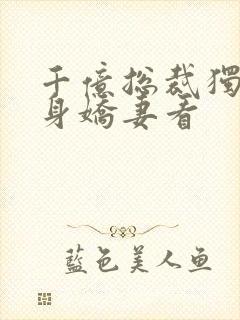 千億总裁獨
身嬌妻看
藍色美人鱼